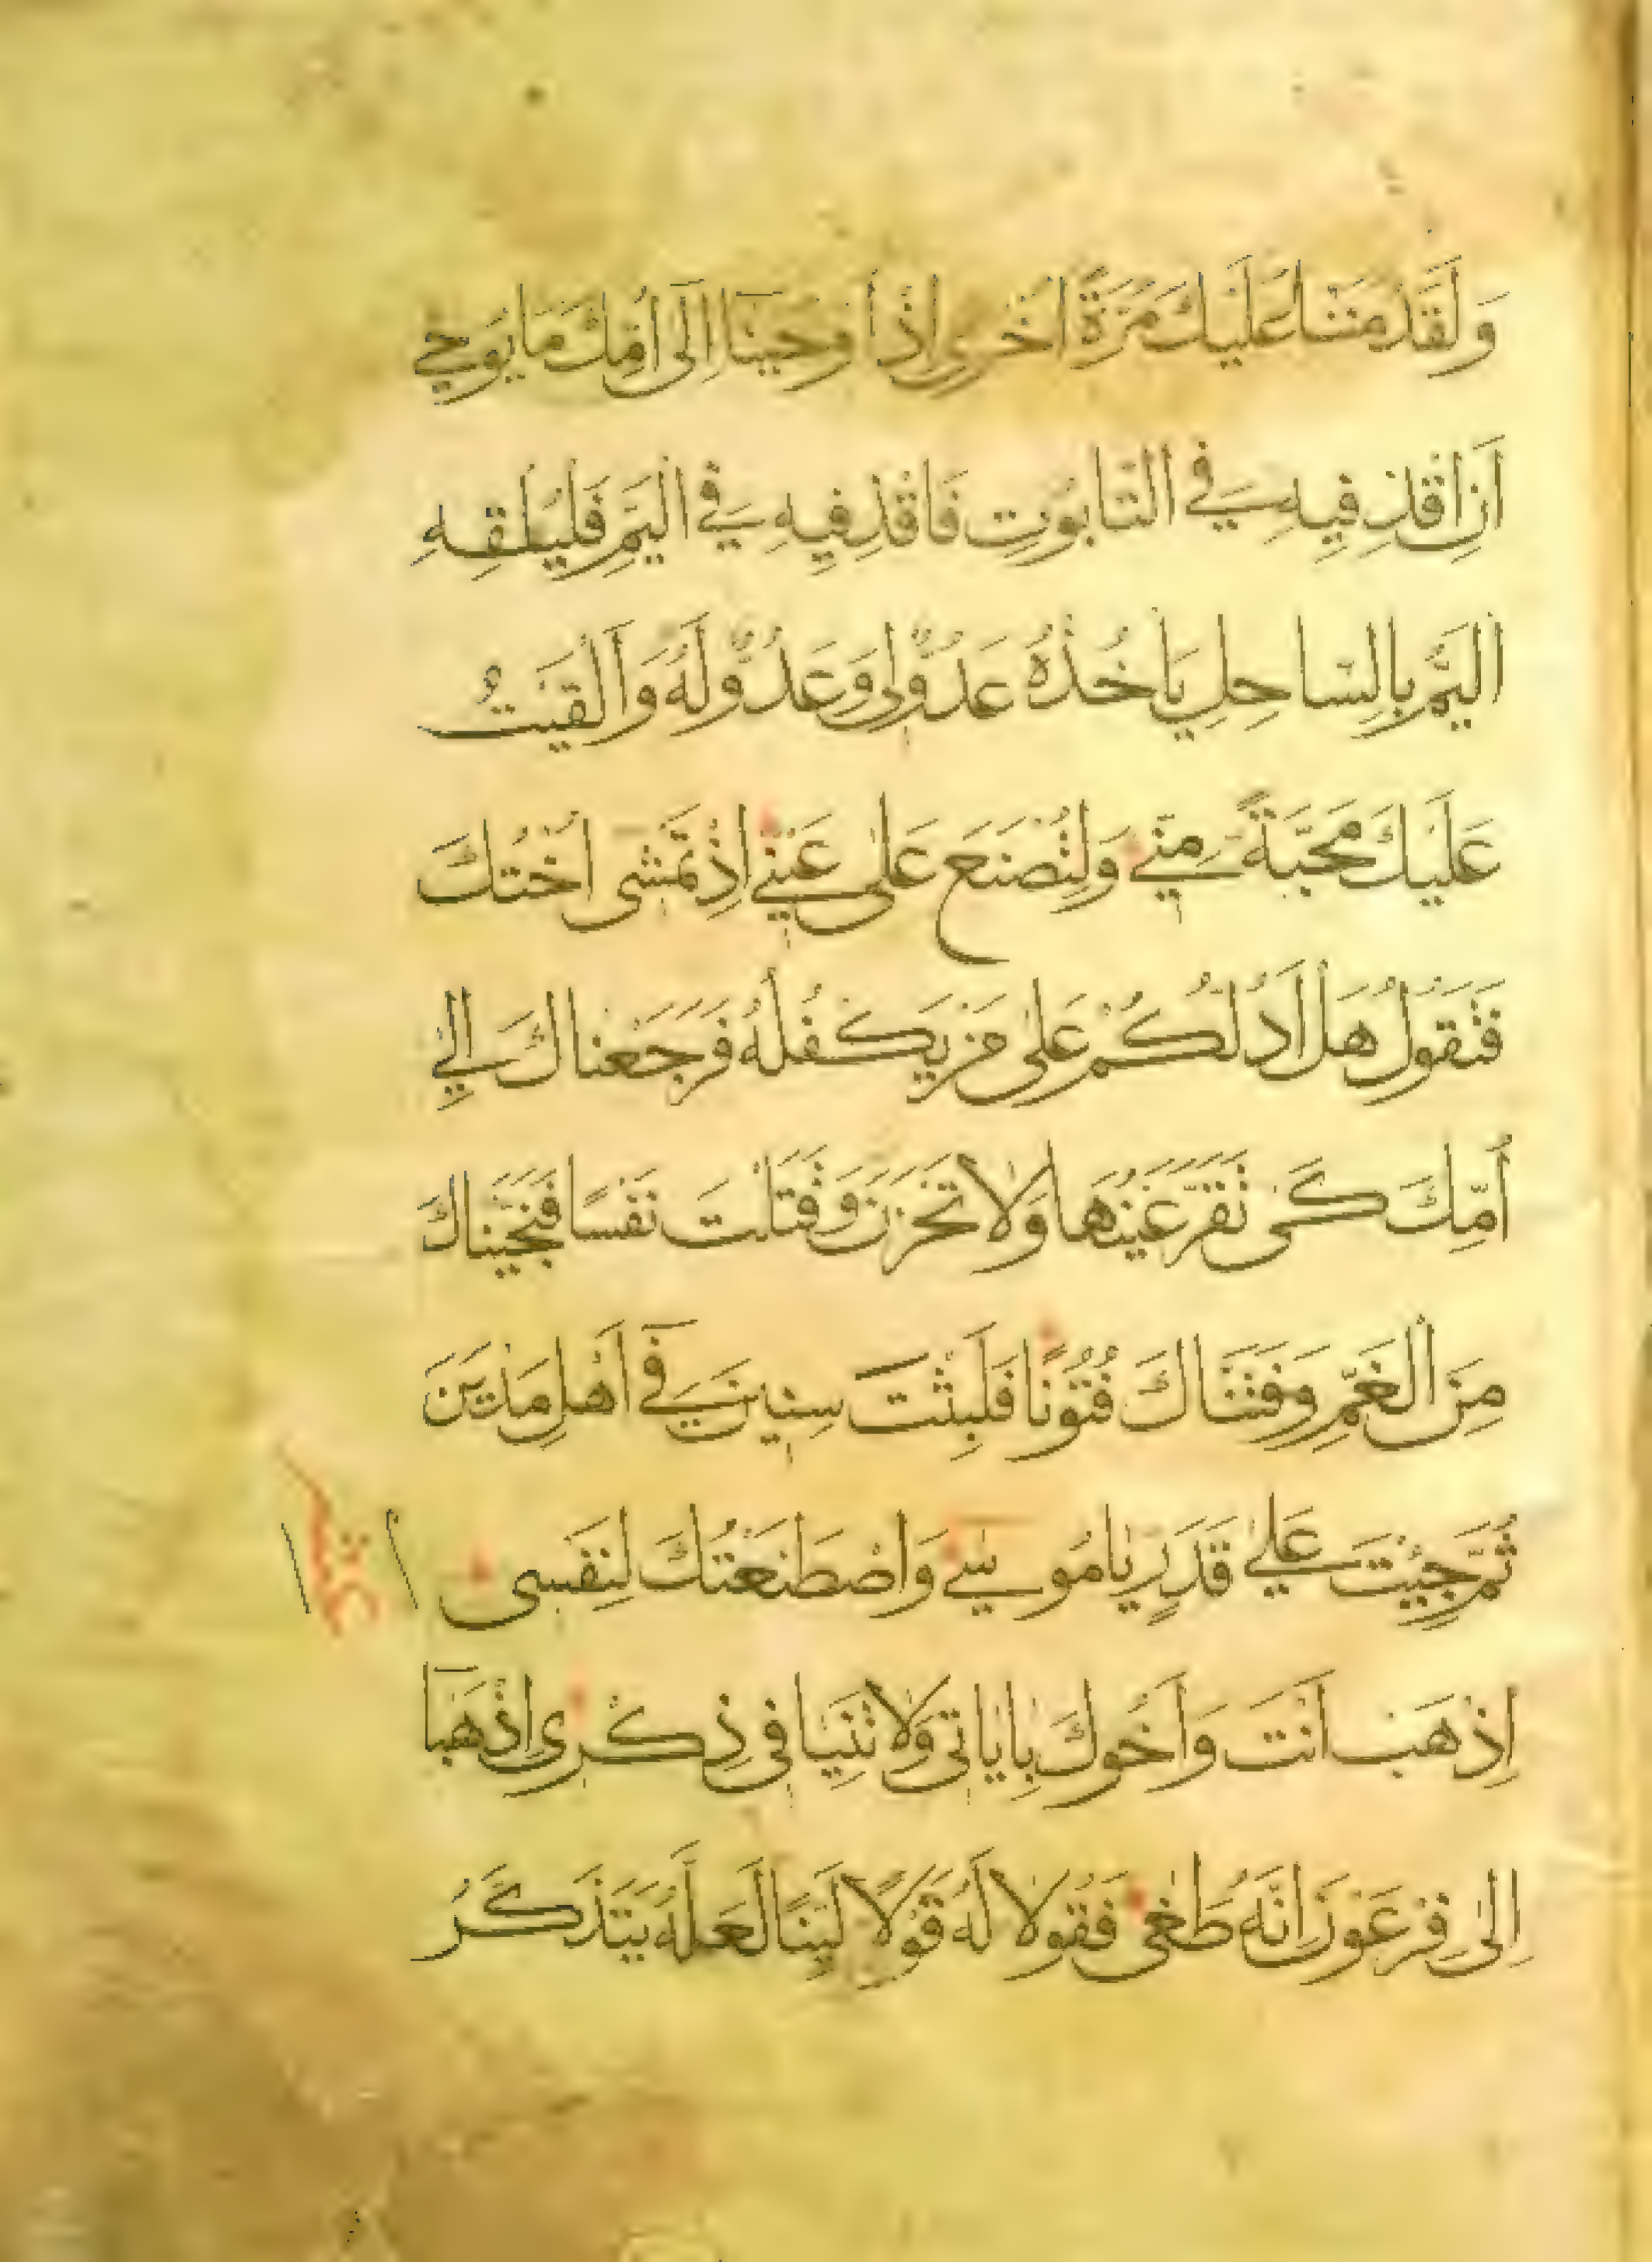 وَلَقَدْ مَنَنَّا عَلَيْكَ مَرَّةً اُخْرى اِذْ اَوْحَيْنَا اِلَى اُمِّكَ مَا يُوحى
اَنِ اقْذِفِيهِ فِي التَّابُوتِ فَاقْذِفِيهِ فِي الْيَمِّ فَلْيُلْقِهِ
الْيَمُّ بِالسَّاحِلِ يَاخُذْهُ عَدُوٌّ لِي وَعَدُوٌّ لَهُ وَاَلْقَيْتُ
عَلَيْكَ مَحَبَّةً مِنِّي وَلِتُصْنَعَ عَلى عَيْنِي اِذْ تَمْشى اُخْتُكَ
فَتَقُولُ هَلْ اَدُلُّكُمْ عَلى مَنْ يَكْفُلُهُ فَرَجَعْنَاكَ اِلى
اُمِّكَ كَى تَقَرَّ عَيْنُهَا وَلا تَحْزَنَ وَقَتَلْتَ نَفْسًا فَنَجَّيْنَاكَ
مِنَ الْغَمِّ وَفَتَنَّاكَ فُتُونًا فَلَبِثْتَ سِنِينَ فِي اَهْلِ مَدْيَنَ
ثُمَّ جِئْتَ عَلى قَدَرٍ يَامُوسى وَاصْطَنَعْتُكَ لِنَفْسى
اِذْهَبْ اَنْتَ وَاَخُوكَ بِايَاتى وَلا تَنِيَا فى ذِكْرِى اِذْهَبَا
اِلى فِرْعَوْنَ اِنَّهُ طَغى فَقُولا لَهُ قَوْلًا لَيِّنًا لَعَلَّهُ يَتَذَكَّرُ